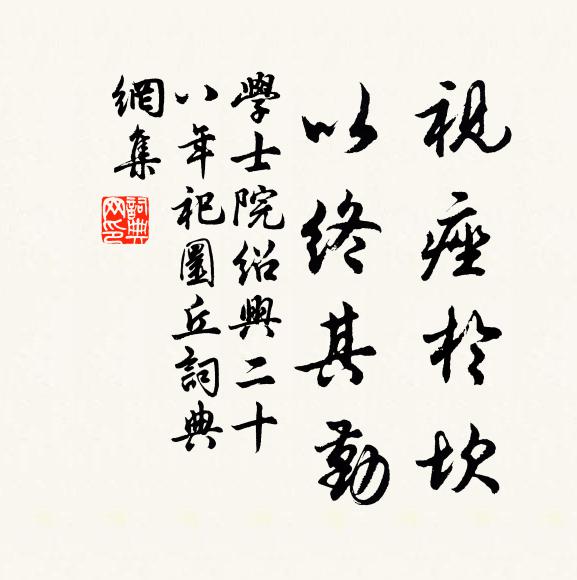 視瘞於坎
以終其勤
學士院紹興二十
八年祀圜丘詞典
網集
詞典
网印